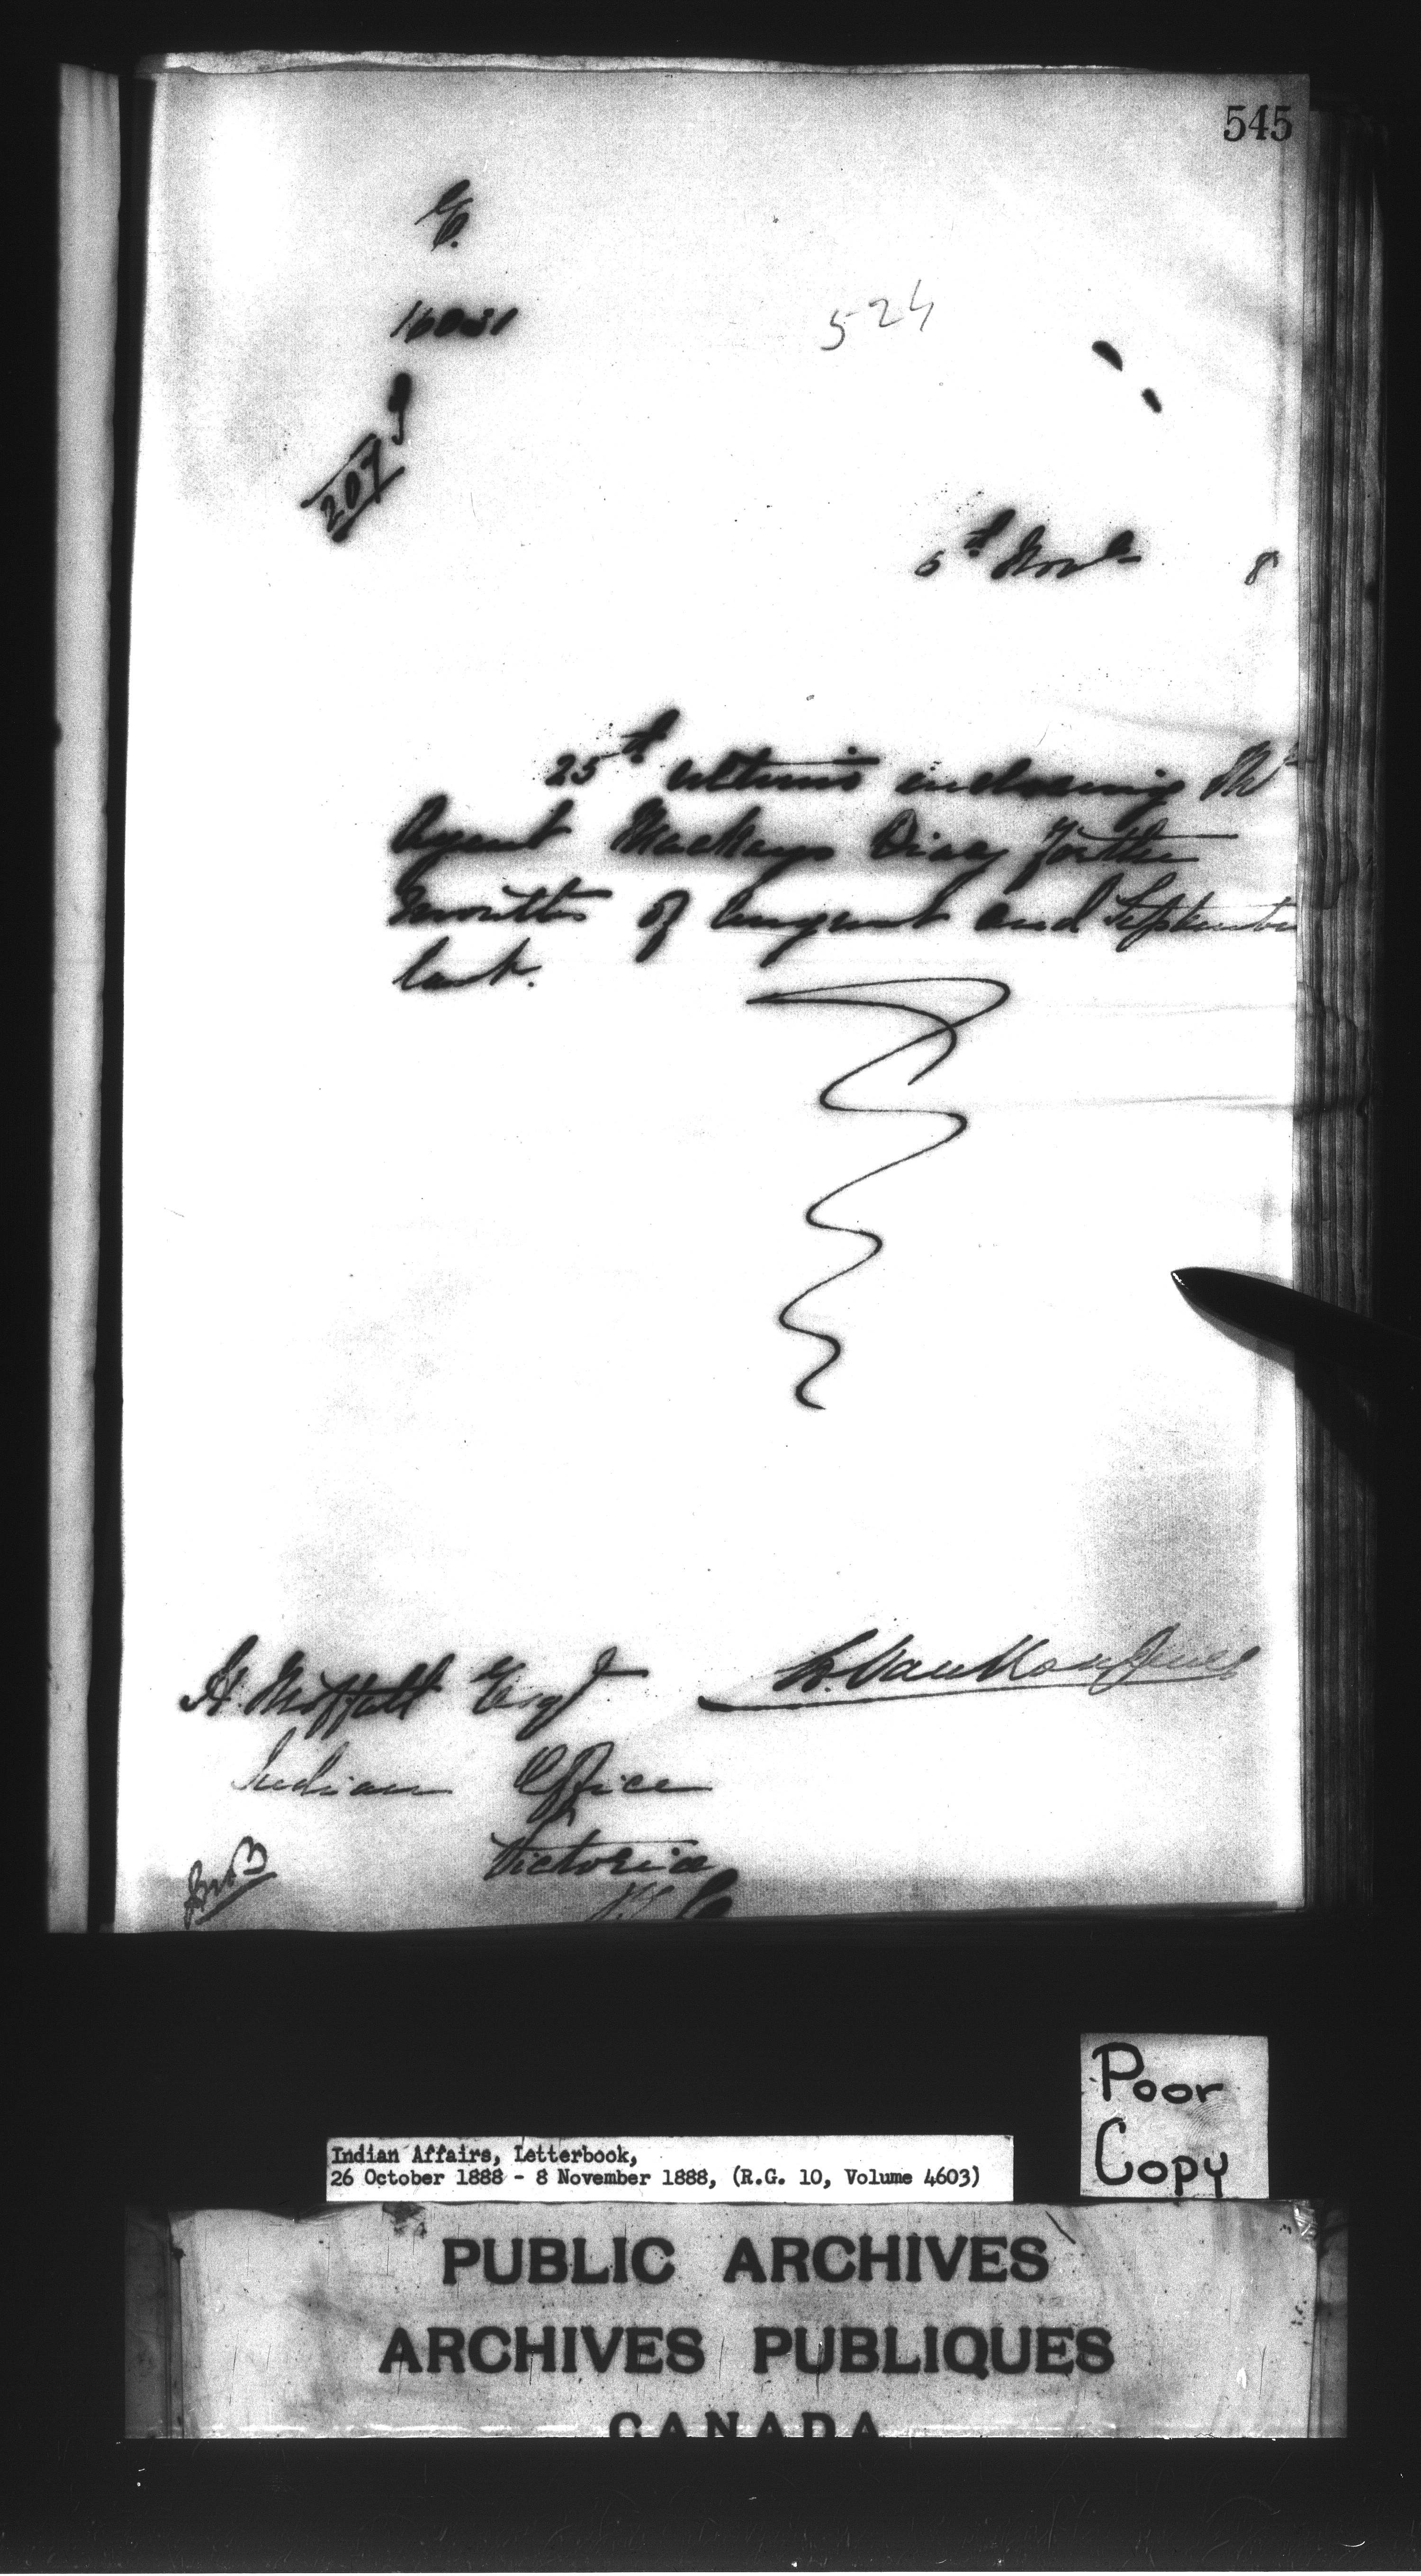 545
524
207
5th Novr 8
25th ultimo inclosing Mr
Agent Mackays Diary for the
months of August and September
last.
H. Moffatt Esqr
L. Vankoughnet
Indian Office
Victoria
B.C.
Poor
Copy
Indian Affairs, Letterbook,
26 October 1888 - 8 November 1888, (R.G. 10, Volume 4603)
PUBLIC ARCHIVES
ARCHIVES PUBLIQUES
CANADA